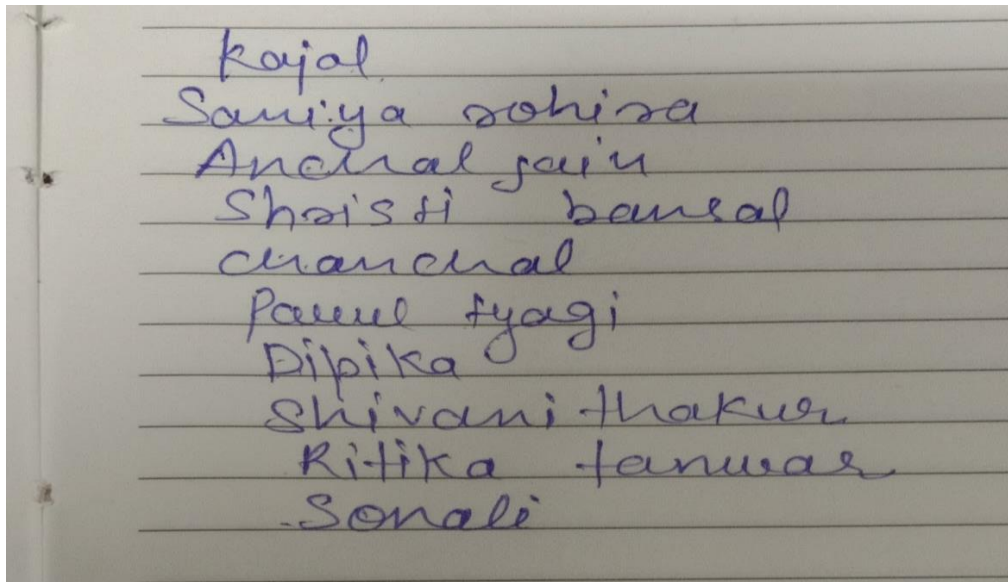 Kajal
Saniya rohira
Anchal jain
Shristi bansal
chanchal
Parul tyagi
Dipika
Shivani thakur
Ritika tanwar
Sonali